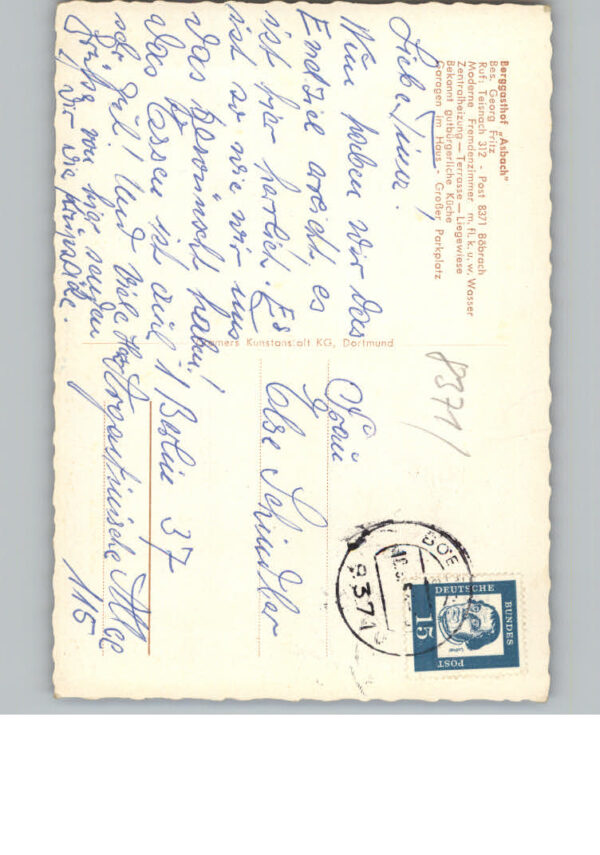 Berggasthof „Asbach"
Bes. Georg Fritz
Ruf: Teisnach 312 - Post 8371 Böbrach
Moderne Fremdenzimmer m. fl. k. u. w. Wasser
Zentralheizung — Terrasse — Liegewiese
Bekannt gutbürgerliche Küche
Garagen im Haus - Großer Parkplatz
Liebe
Nun haben wir das
Endziel erreicht. es
ist hier herrlich. Es
ist so wie wir uns
das gewünscht haben!
das Essen ist auch
sehr gut! Und viele
Grüße von hier senden
Dir die
Cramers Kunstanstalt KG, Dortmund
8371
Frau
Else Schindler
1 Berlin 37
Argentinische Allee
115
BÖB
8371
DEUTSCHE
BUNDES
POST
15
Luther